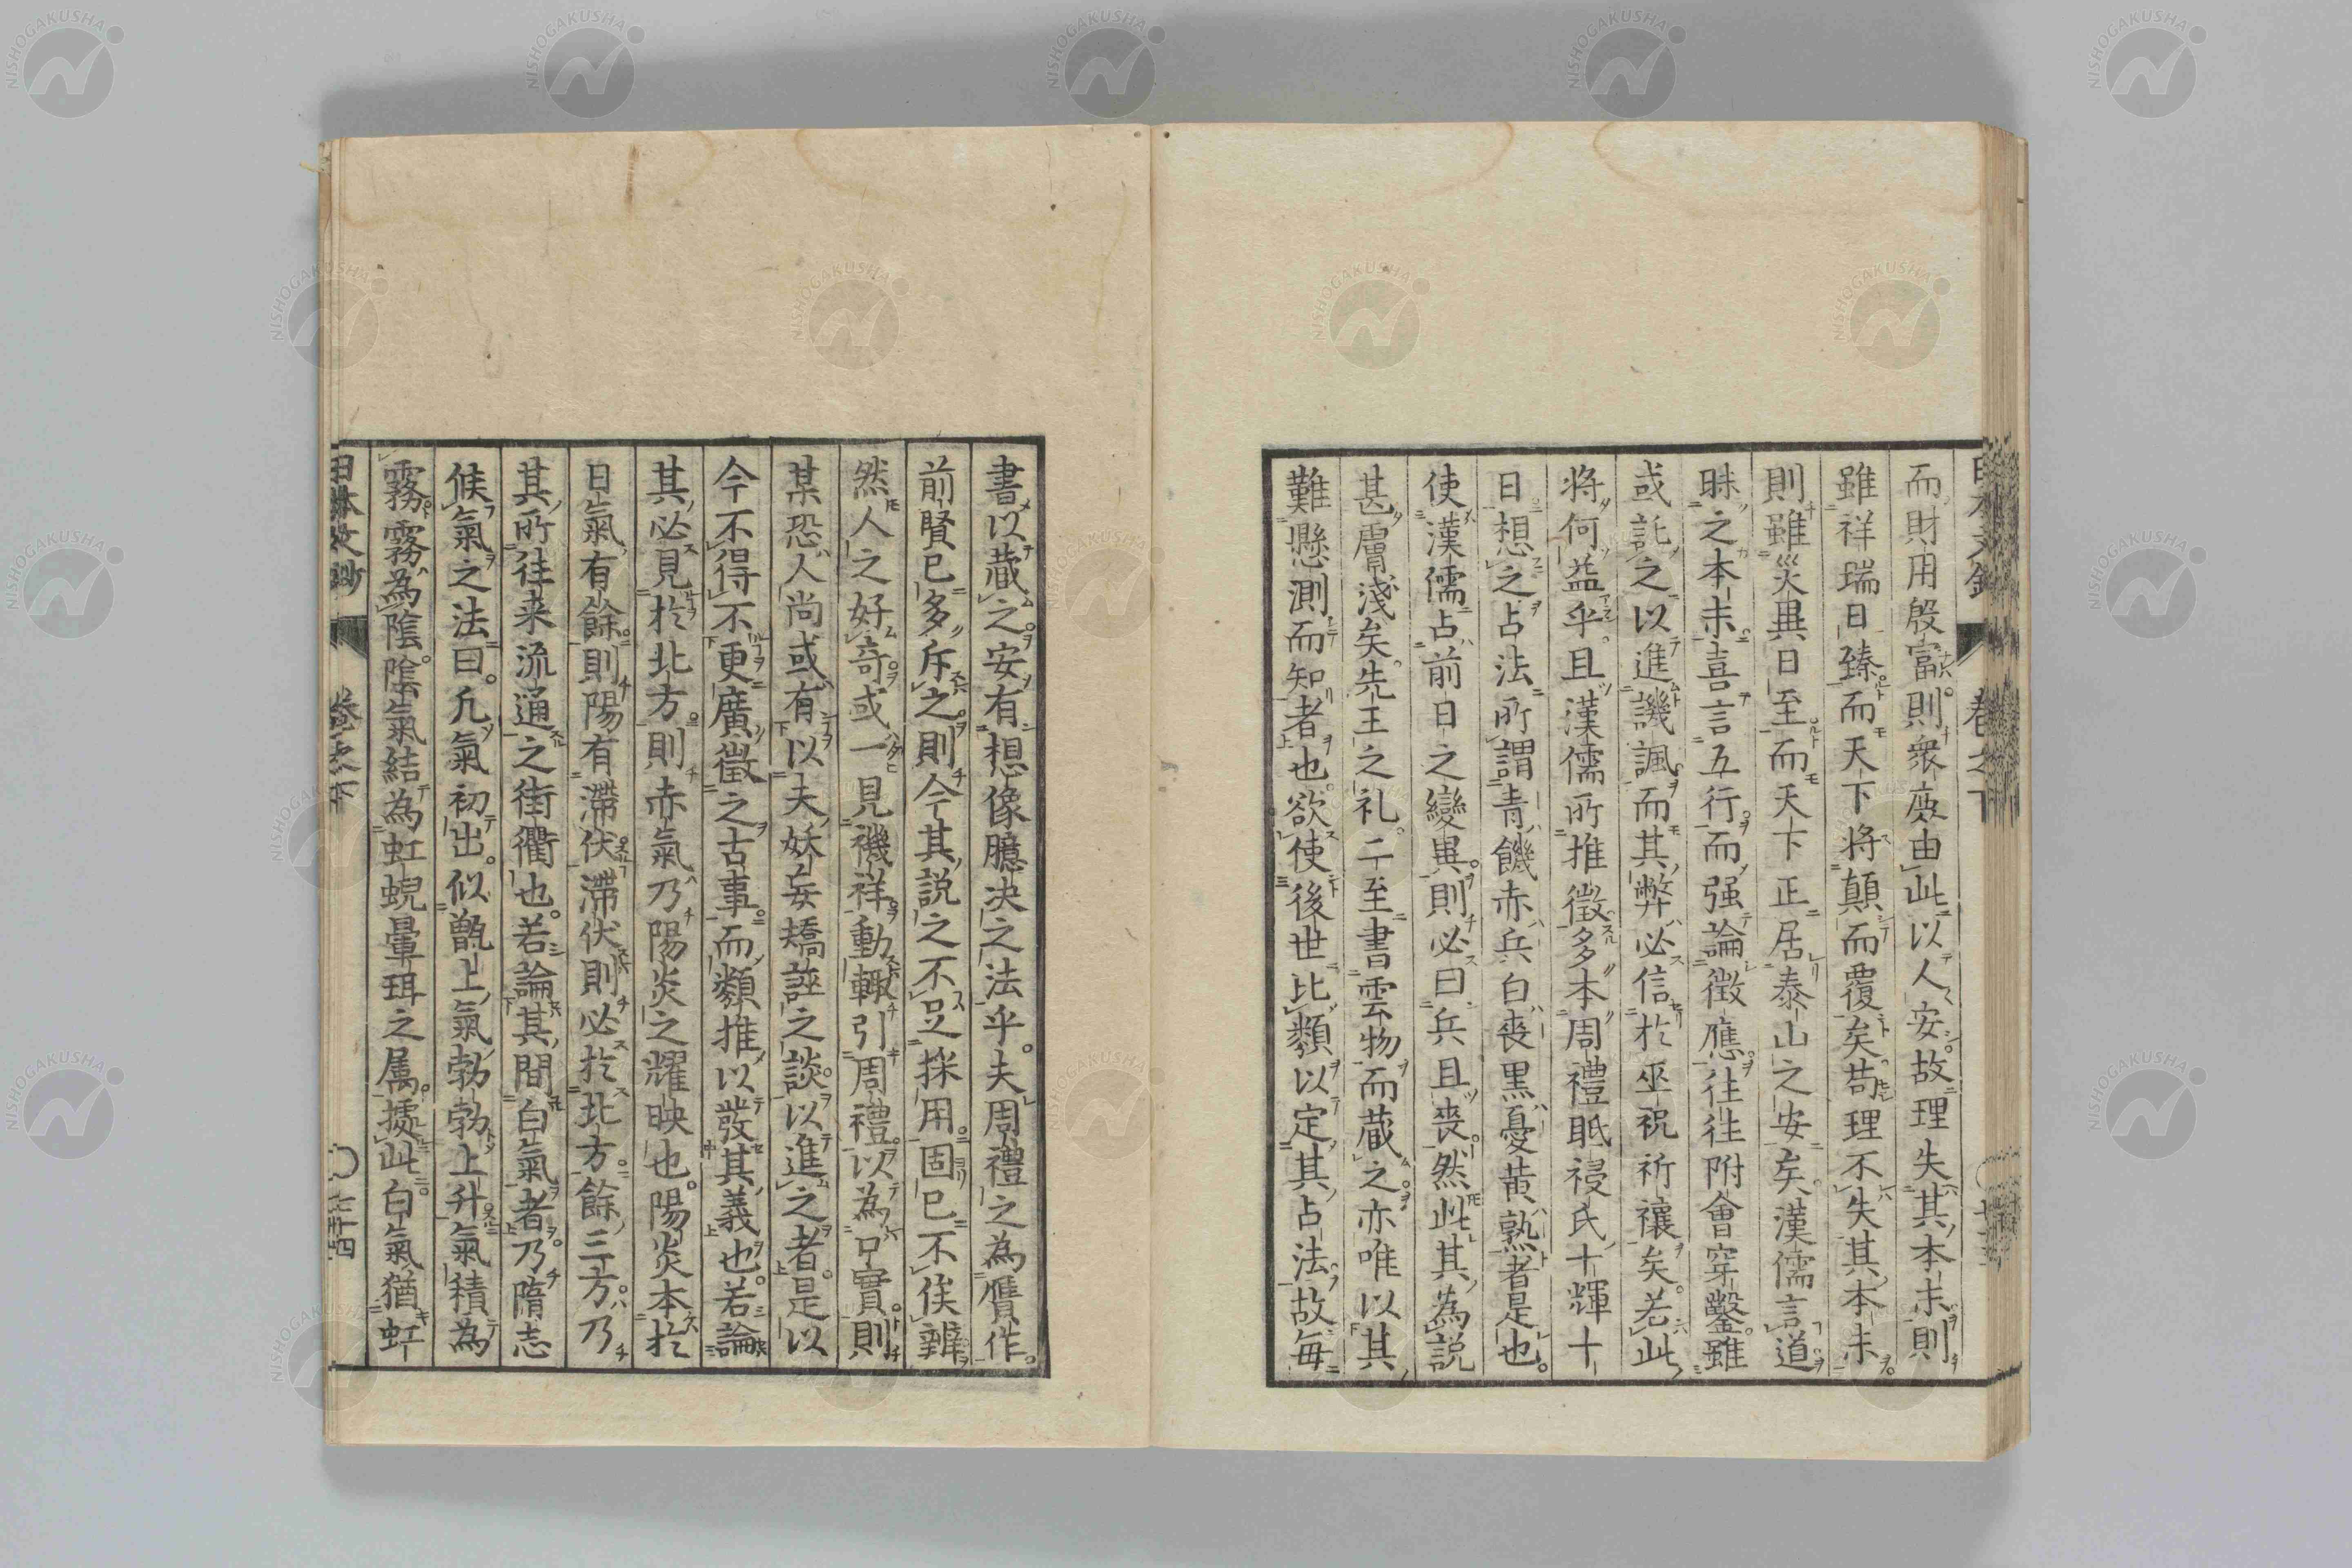 而財用殷富則衆庶由此以人安故理失其本末則
雖祥瑞日臻而天下将顛而覆矣苟理不失其本末
則雖災異日至而天下正居泰山之安矣漢儒言道
昧之本未喜言五行而强論徴應徃徃附會穿鑿雖
或託之以進譏諷而其弊必信於巫祝祈禳矣若此
将何益乎且漢儒所推徴多本周禮眡祲氏十輝十
日想之占法所謂青饑赤兵白喪黒憂黄熟者是也
使漢儒占前日之變異則必曰兵且喪然此其為説
甚膚淺矣先王之礼二至書雲物而蔵之亦唯以其
難懸測而知者也欲使後世比類以定其占法故毎
書以蔵之安有想像臆决之法乎夫周禮之為贋作
前賢已多斥之則今其説之不足採用固已不俟辨
然人之好竒或一見禨祥動輙引周禮以為口實則
某恐人尚或有以夫妖妄矯誣之談以進之者是以
今不得不更廣徴之古事而類推以發其義也若論
其必見於北方則赤氣乃陽炎之耀映也陽炎本於
日氣有餘則陽有滞伏滞伏則必於北方餘三方乃
其所徃来流通之街衢也若論其間白氣者乃隋志
候氣之法曰凡氣初出似甑上氣勃勃上升氣積為
霧霧為陰陰氣結為虹蜺暈珥之属據此白氣猶虹
卷之下